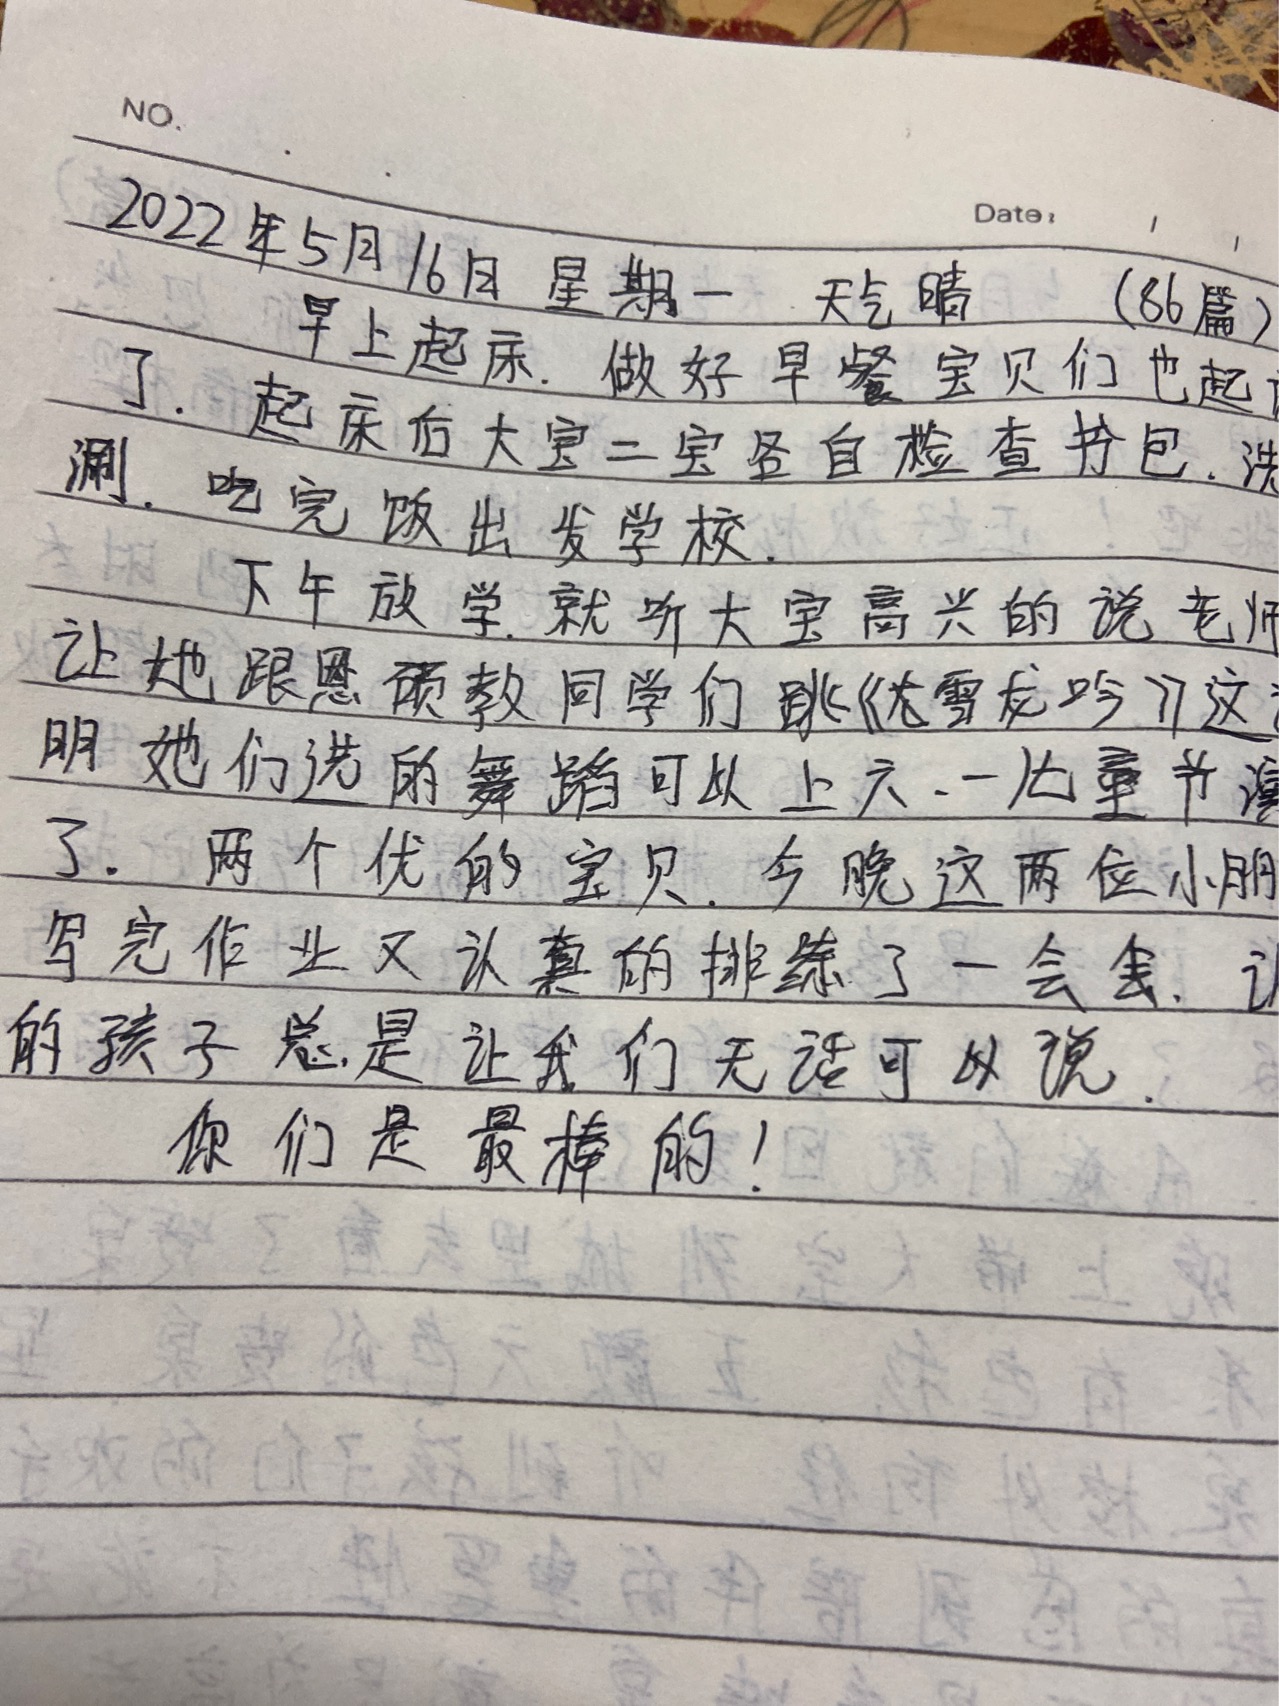 NO.
Date:
2022年5月16日 星期一 天气晴 (86篇)
早上起床.做好早餐宝贝们也起
了.起床后大宝二宝各自检查书包.洗
涮.吃完饭出发学校.
下午放学.就听大宝高兴的说老师
让她跟恩硕教同学们跳《龙雪龙吟》这
明她们选的舞蹈可以上六.一儿童节演
了.两个优的宝贝.今晚这两位小朋
写完作业又认真的排练了一会会.认
的孩子总是让我们无话可以说.
你们是最棒的!